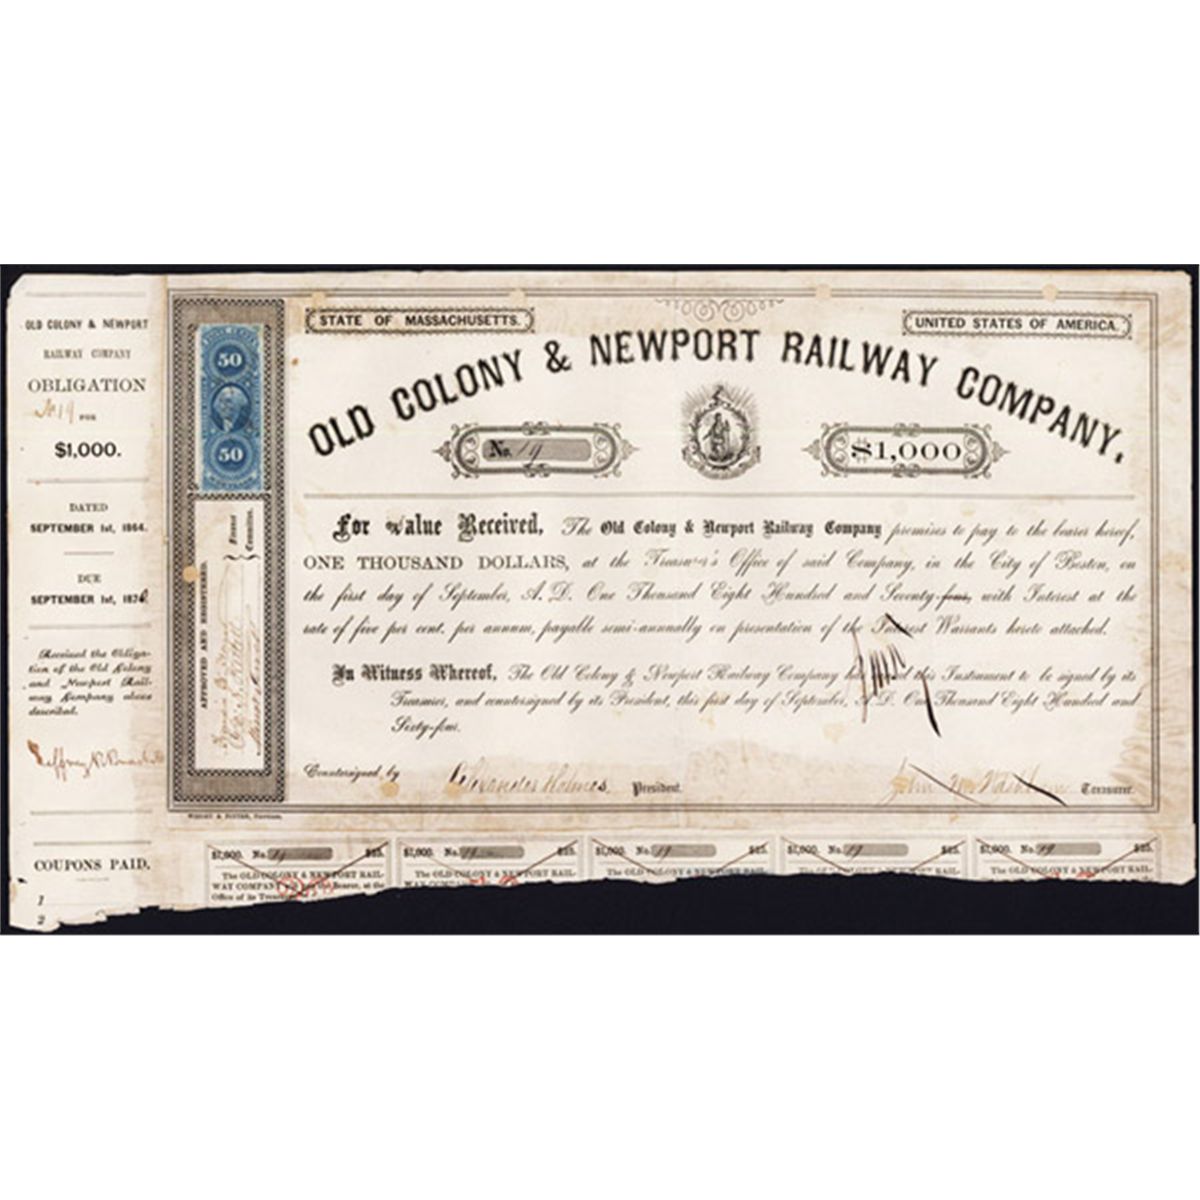 OLD COLONY & NEWPORT
RAILWAY COMPANY
OBLIGATION
No 19 FOR
$1,000.
DATED
SEPTEMBER 1st, 1864.
DUE
SEPTEMBER 1st, 187
Received the Obliga-
tion of the Old Colony
and Newport Rail-
way Company above
described.
COUPONS PAID.
1
2
50
50
APPROVED AND REGISTERED.
Finance
Committee.
WRIGHT & POTTER, Printers.
STATE OF MASSACHUSETTS.
UNITED STATES OF AMERICA.
OLD COLONY & NEWPORT RAILWAY COMPANY.
No. 19
$1,000
For Value Received, The Old Colony & Newport Railway Company promises to pay to the bearer hereof,
ONE THOUSAND DOLLARS, at the Treasurer's Office of said Company, in the City of Boston, on
the first day of September, A. D. One Thousand Eight Hundred and Seventy-four, with Interest at the
rate of five per cent. per annum, payable semi-annually on presentation of the Interest Warrants hereto attached.
In Witness Whereof, The Old Colony & Newport Railway Company has this Instrument to be signed by its
Treasurer, and countersigned by its President, this first day of September, A. D. One Thousand Eight Hundred and
Sixty-four.
Countersigned by Alexander Holmes President.
John M Washburn Treasurer.
$1,000. No. 19 $25.
The OLD COLONY & NEWPORT RAIL-
WAY COMPANY Bearer, at the
Office of its
$1,000. No. 19 $25.
The OLD COLONY & NEWPORT RAIL-
WAY COMPANY
$1,000. No. 19 $25.
The OLD COLONY & NEWPORT RAIL-
$1,000. No. 19 $25.
The OLD COLONY & NEWPORT RAIL-
$1,000. No. 19 $25.
The OLD COLONY & NEWPORT RAIL-